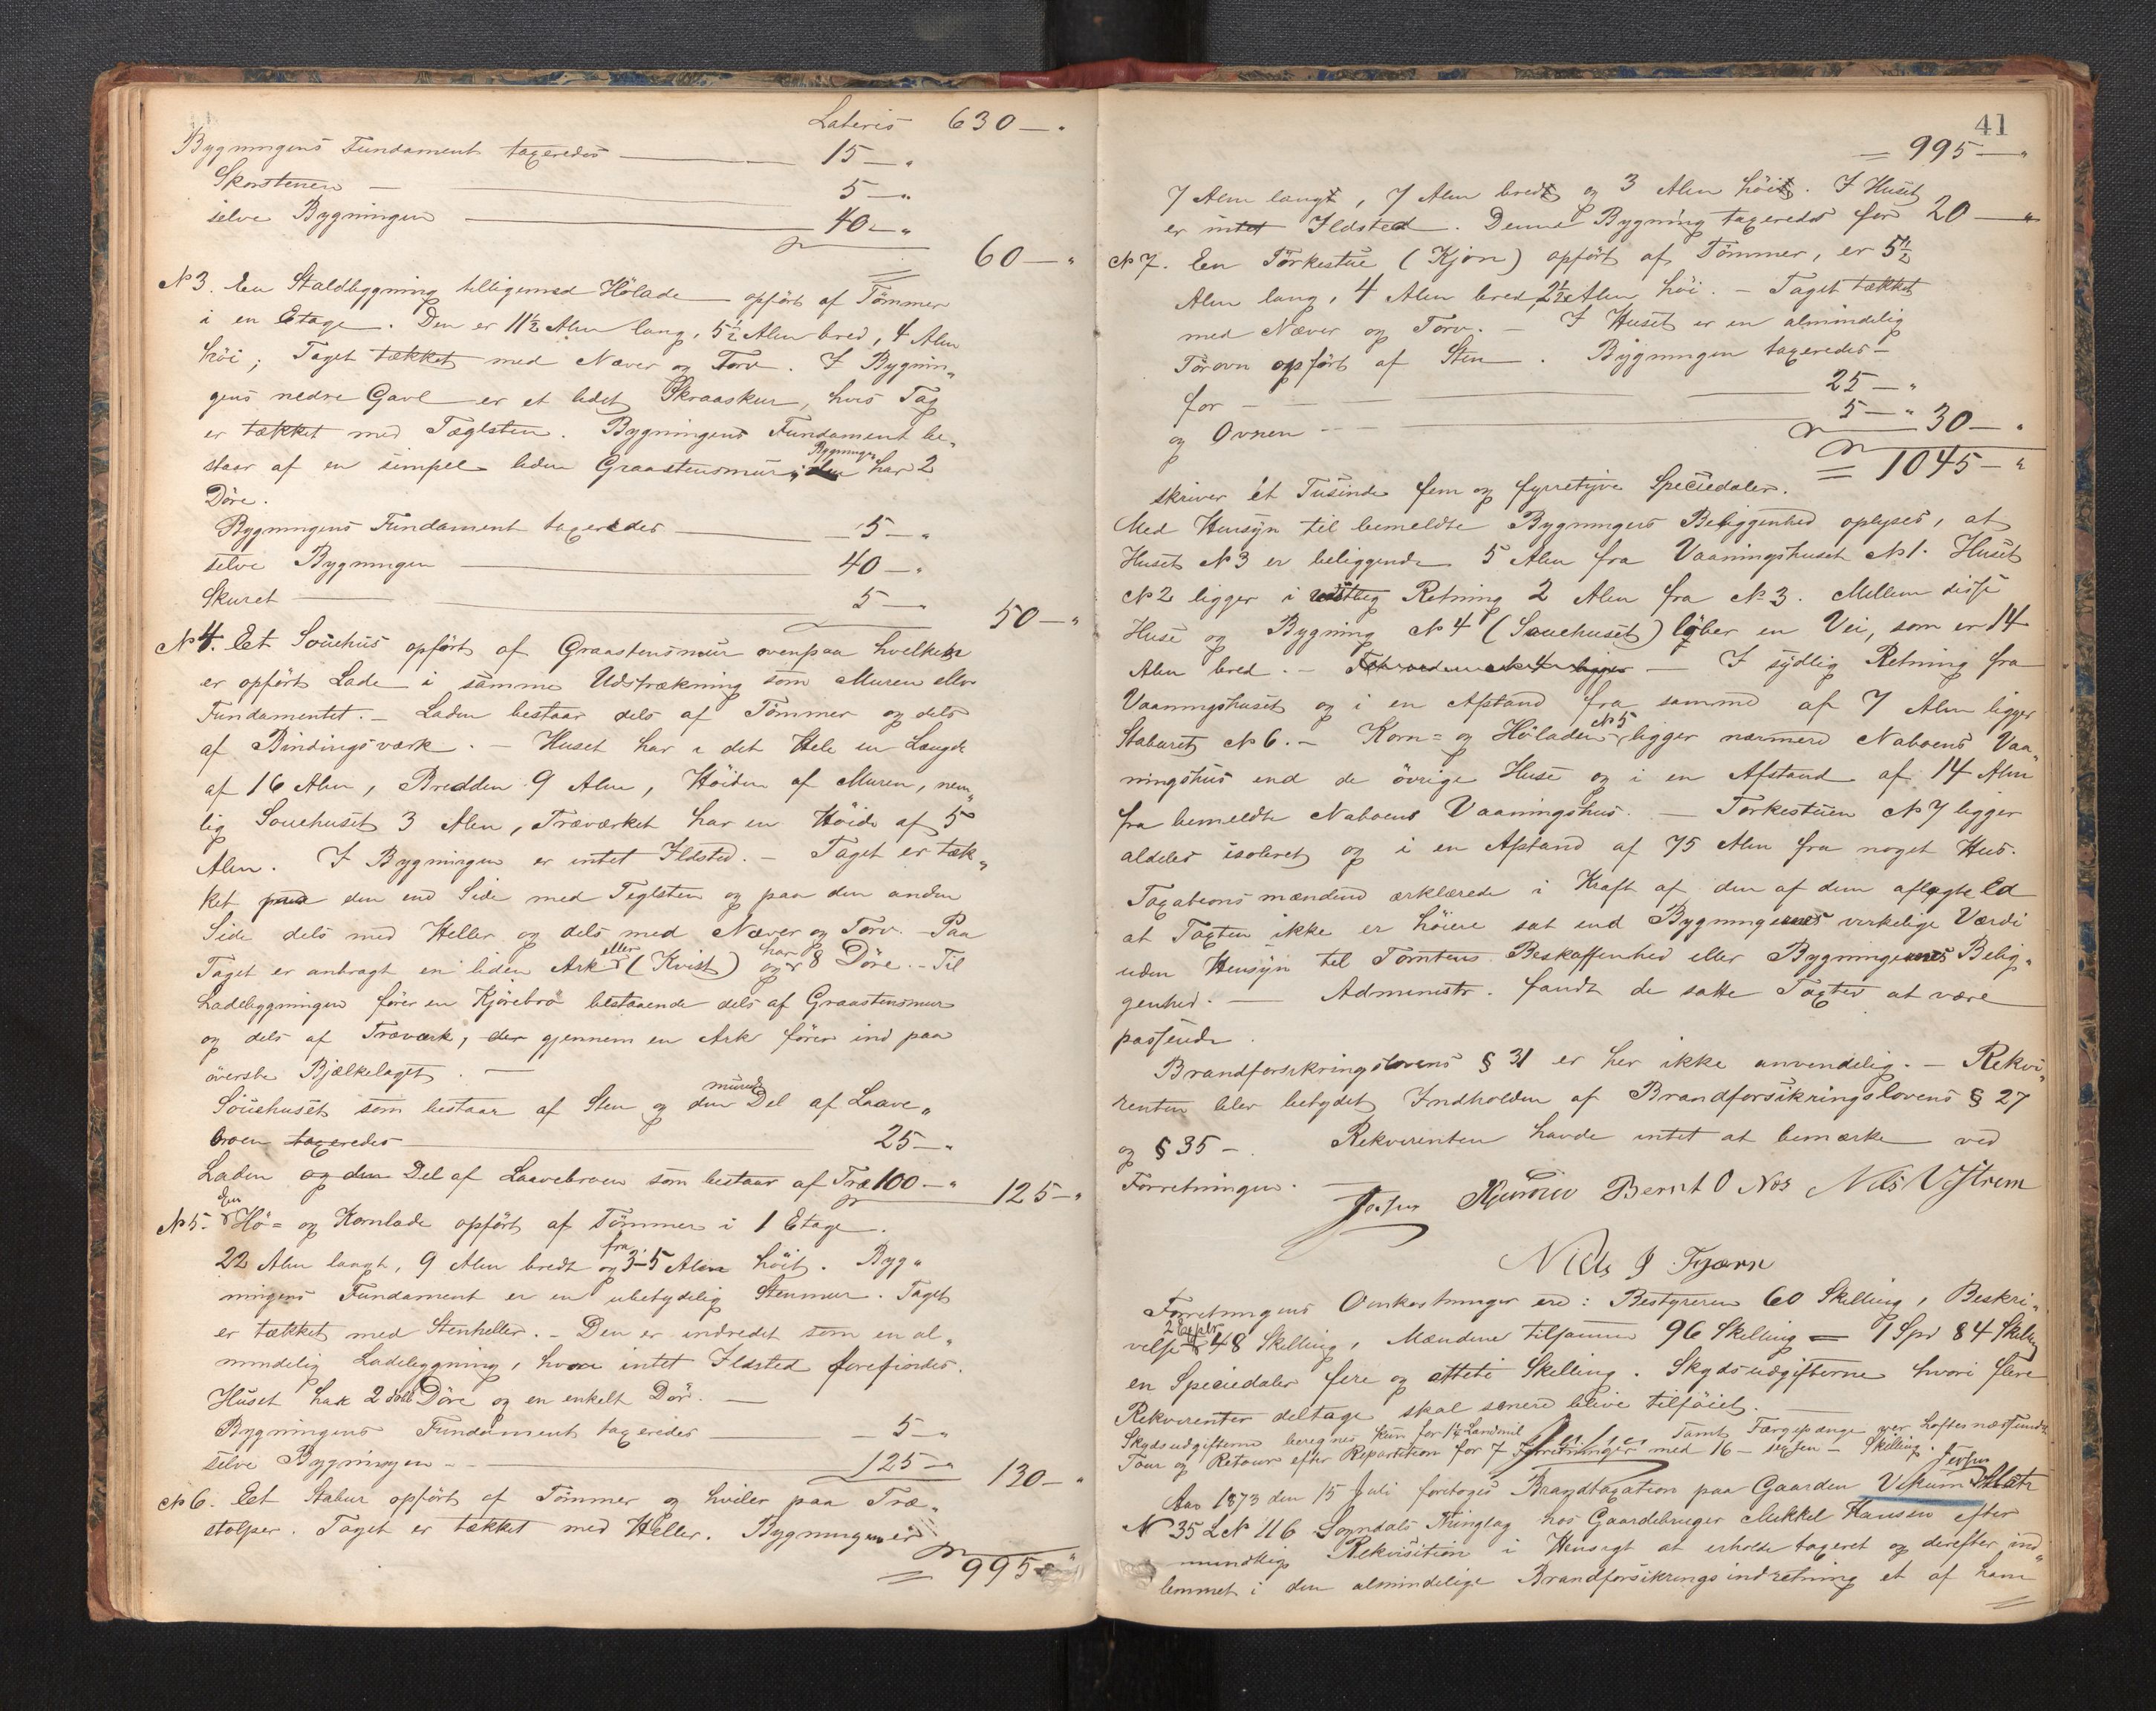 Lateris 630 — "
Bygningens Fundament taxeredes — 15 — "
Skorstenen — 5 — "
selve Bygningen — 40 — "
60 — "
N 3. En Staldbygning tilligemed Hölade opfört af Tömmer
i en Etage. Den er 11½ Alen lang, 5½ Alen bred, 4 Alen
höi; Taget tækket med Næver og Torv. I Bygnin„
gens nedre Gavl er et lidet Skraaskur, hvis Tag
er tækket med Tæglsten. Bygningens Fundament be„
staar af en simpel liden Graastensmur; Bygningen har 2
Döre.
Bygningens Fundament taxeredes — 5 — "
selve Bygningen — 40 — "
Skuret — 5 — " 50 — "
N 4. Et Souehus opfört af Graastensmur ovenpaa hvilken
er opfört Lade i samme Udstrækning som Muren eller
Fundamentet. — Laden bestaar dels af Tömmer og dels
af Bindingsværk. — Huset har i det Hele en Længde
af 16 Alen, Bredden 9 Alen, Höiden af Muren, nem„
lig Souehuset 3 Alen, Træværket har en Höide af 5
Alen. I Bygningen er intet Ildsted. — Taget er tæk„
ket paa den ene Side med Teglsten og paa den anden
Side dels med Heller og dels med Næver og Torv. — Paa
Taget er anbragt en liden Ark eller (Kvist) og har 8 Döre. — Til
Ladebygningen förer en Kjörebro bestaaende dels af Graastensmur
og dels af Træværk, der gjennem en Ark förer ind paa
överste Bjælkelaget. —
Souehuset som bestaar af Sten og den murede Del af Laave„
broen taxeredes — 25 — "
Laden og den Del af Laavebroen som bestaar af Træ 100 — " 125 — "
N 5. En Hö= og Kornlade opfört af Tömmer i 1 Etage.
22 Alen langt, 9 Alen bredt og fra 3–5 Alen höit. Byg„
ningens Fundament er en ubetydelig Stenmur. Taget
er tækket med Stenheller. — Den er indredet som en al„
mindelig Ladebygning, hvori intet Ildsted forefindes.
Huset har 2 dobb Döre og en enkelt Dör. —
Bygningens Fundament taxeredes — 5 — "
selve Bygningen — 125 — " 130 — "
N 6. Et Stabur opfört af Tömmer og hviler paa Træ„
stolper. Taget er tækket med Heller. Bygningen er
= 995 — "
41
= 995 — "
7 Alen langt, 7 Alen bredt og 3 Alen höit. I Huset
er intet Ildsted. Denne Bygning taxeredes for 20 — "
N 7. En Törkestue (Kjön) opfört af Tömmer, er 5½
Alen lang, 4 Alen bred, 2½ Alen höi. — Taget tækket
med Næver og Torv. — I Huset er en almindelig
Törovn opfört af Sten. Bygningen taxeredes —
for — 25 — "
og Ovnen — 5 — " 30 — "
= 1045 — "
skriver et Tusinde fem og fyrretyve Speciedaler.
Med Hensyn til bemeldte Bygningers Beliggenhed oplyses, at
Huset N 3 er beliggende 5 Alen fra Vaaningshuset N 1. Huset
N 2 ligger i vestlig Retning 2 Alen fra N 3. Mellem disse
Huse og Bygning N 4 (Souehuset) löber en Vei, som er 14
Alen bred. — — I sydlig Retning fra
Vaaningshuset og i en Afstand fra samme af 7 Alen ligger
Staburet N 6. — Korn= og Höladen N 5 ligger nærmere Naboens Vaa„
ningshus end de övrige Huse og i en Afstand af 14 Alen
fra bemeldte Naboens Vaaningshus. — Törkestuen N 7 ligger
aldeles isoleret og i en Afstand af 75 Alen fra noget Hus.
Taxationsmændene erklærede i Kraft af den af dem aflagte Ed
at Taxten ikke er höiere sat end Bygningernes virkelige Værdi
uden Hensyn til Tomtens Beskaffenhed eller Bygningernes Belig„
genhed. — Administr. fandt de satte Taxter at være
passende.
Brandforsikringslovens § 31 er her ikke anvendelig. — Rekvi„
renten blev betydet Indholden af Brandforsikringslovens § 27
og § 35 —. Rekvirenten havde intet at bemærke ved
Forretningen. —
Bernt O Nos Nils Vestrem
Niels J Fjærn
Forretningens Omkostninger ere: Bestyreren 60 Skilling, Beskri„
velse 2 Expl. 48 Skilling, Mændene tilsammen 96 Skilling = 1 Spd 84 Skilling
en Speciedaler fire og otteti Skilling. Skydsudgifterne hvori flere
Rekvirenter deltage skal senere blive tilföiet. —
Skydsudgifterne beregnes kun for 1½ Landmil samt Færgepenge over
Tour og Retour efter Repartition for 7 Forretninger med 16 – sexten – Skilling.
Aar 1873 den 15 Juli foretoges Brandtaxation paa Gaarden
N 35 L N 116 Sogndals Thinglag hos Gaardbruger Mikkel Hansen efter
mundtlig Rekvisition i Hensigt at erholde taxeret og derefter ind„
lemmet i den almindelige Brandforsikringsindretning et af ham